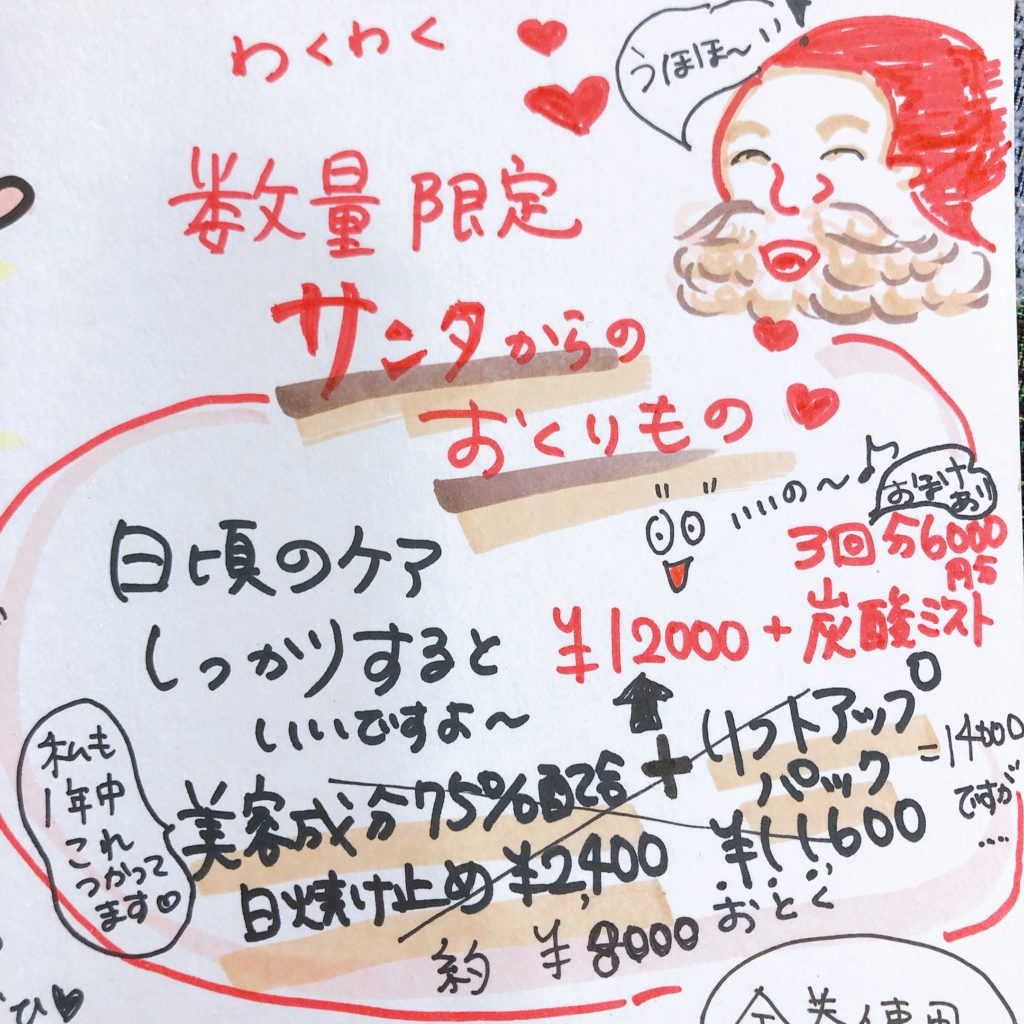 わくわく
うほほ〜い
数量限定
サンタからの
おくりもの
いいの〜♪
おまけ
あり
日頃のケア
しっかりすると
いいですよ〜
3回分6000
円分
¥12000+炭酸ミスト
私も
1年中
これ
つかって
ます♡
美容成分75%配合
日焼け止め ¥2,400
+
リフトアップ
パック
¥11,600
=14000
ですが…
約 ¥8000おとく